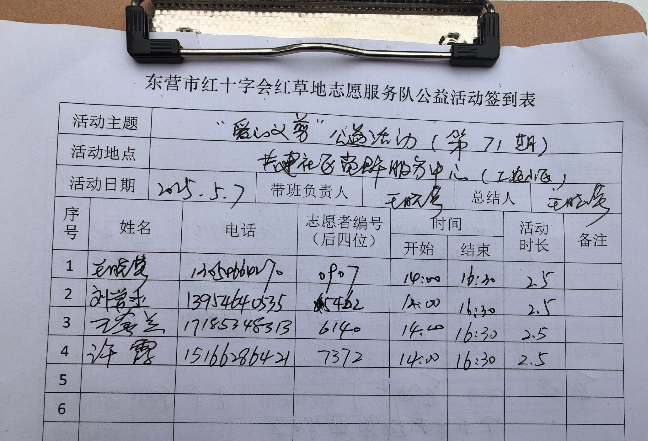 东营市红十字会红草地志愿服务队公益活动签到表
活动主题 "爱心义剪"公益活动(第71期)
活动地点 社区党群服务中心
活动日期 2025.5.7 带班负责人 总结人
序号 姓名 电话 志愿者编号(后四位) 时间 开始 结束 活动时长 备注
1 0907 14:00 16:30 2.5
2 13954640535 5462 14:00 16:30 2.5
3 17185348313 6140 14:00 16:30 2.5
4 许霞 15166286421 7372 14:00 16:30 2.5
5
6